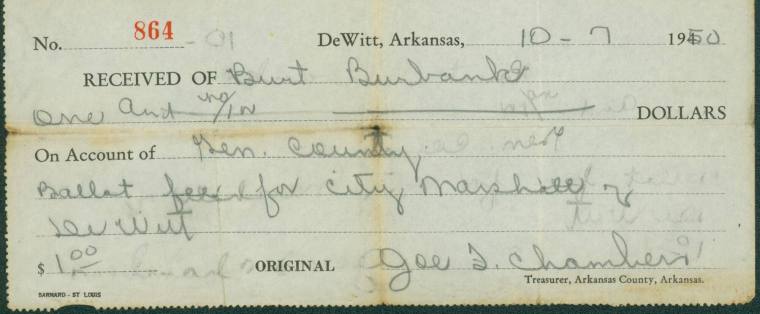 No. 864 DeWitt, Arkansas, 10 - 7 1950
RECEIVED OF Burt Burbank
One and no/100 DOLLARS
On Account of Gen. County
Ballot fee for City Marshall of
De Witt
$ 1.00 ORIGINAL Joe S. Chambers
Treasurer, Arkansas County, Arkansas.
BARNARD - ST LOUIS